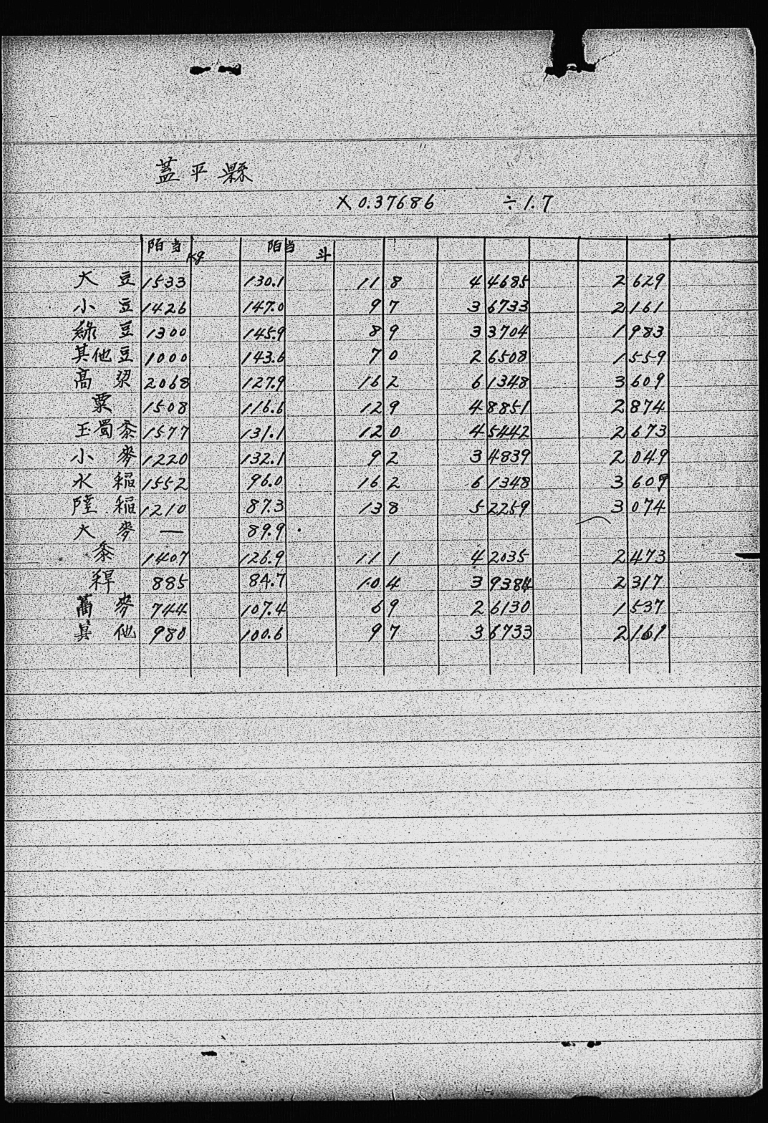 蓋平縣
×0.37686 ÷1.7
陌当 kg 陌当 斗
大豆 1533 130.1 11 8 4 4685 2 629
小豆 1426 147.0 9 7 3 6733 2 161
綠豆 1300 145.9 8 9 3 3704 1 983
其他豆 1000 143.6 7 0 2 6508 1 559
高粱 2068 127.9 16 2 6 1348 3 609
粟 1508 116.6 12 9 4 8851 2 874
玉蜀黍 1577 131.1 12 0 4 5442 2 673
小麥 1220 132.1 9 2 3 4839 2 049
水稲 1552 96.0 16 2 6 1348 3 609
陸稲 1210 87.3 13 8 5 2259 3 074
大麥 — 89.9
黍 1407 126.9 11 1 4 2035 2 473
稗 885 84.7 10 4 3 9384 2 317
蕎麥 744 107.4 6 9 2 6130 1 537
其他 980 100.6 9 7 3 6733 2 161